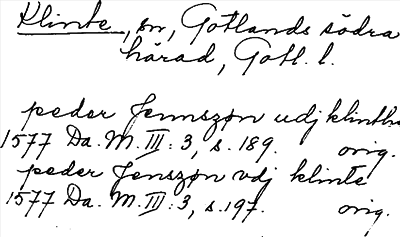 Klinte, sn, Gotlands södra
härad, Gotl. l.
peder Jennszøn udj klinthe
1577 Da. M. III: 3, s. 189. orig.
peder Jenszøn vdj klinte
1577 Da. M. III: 3, s. 197. orig.